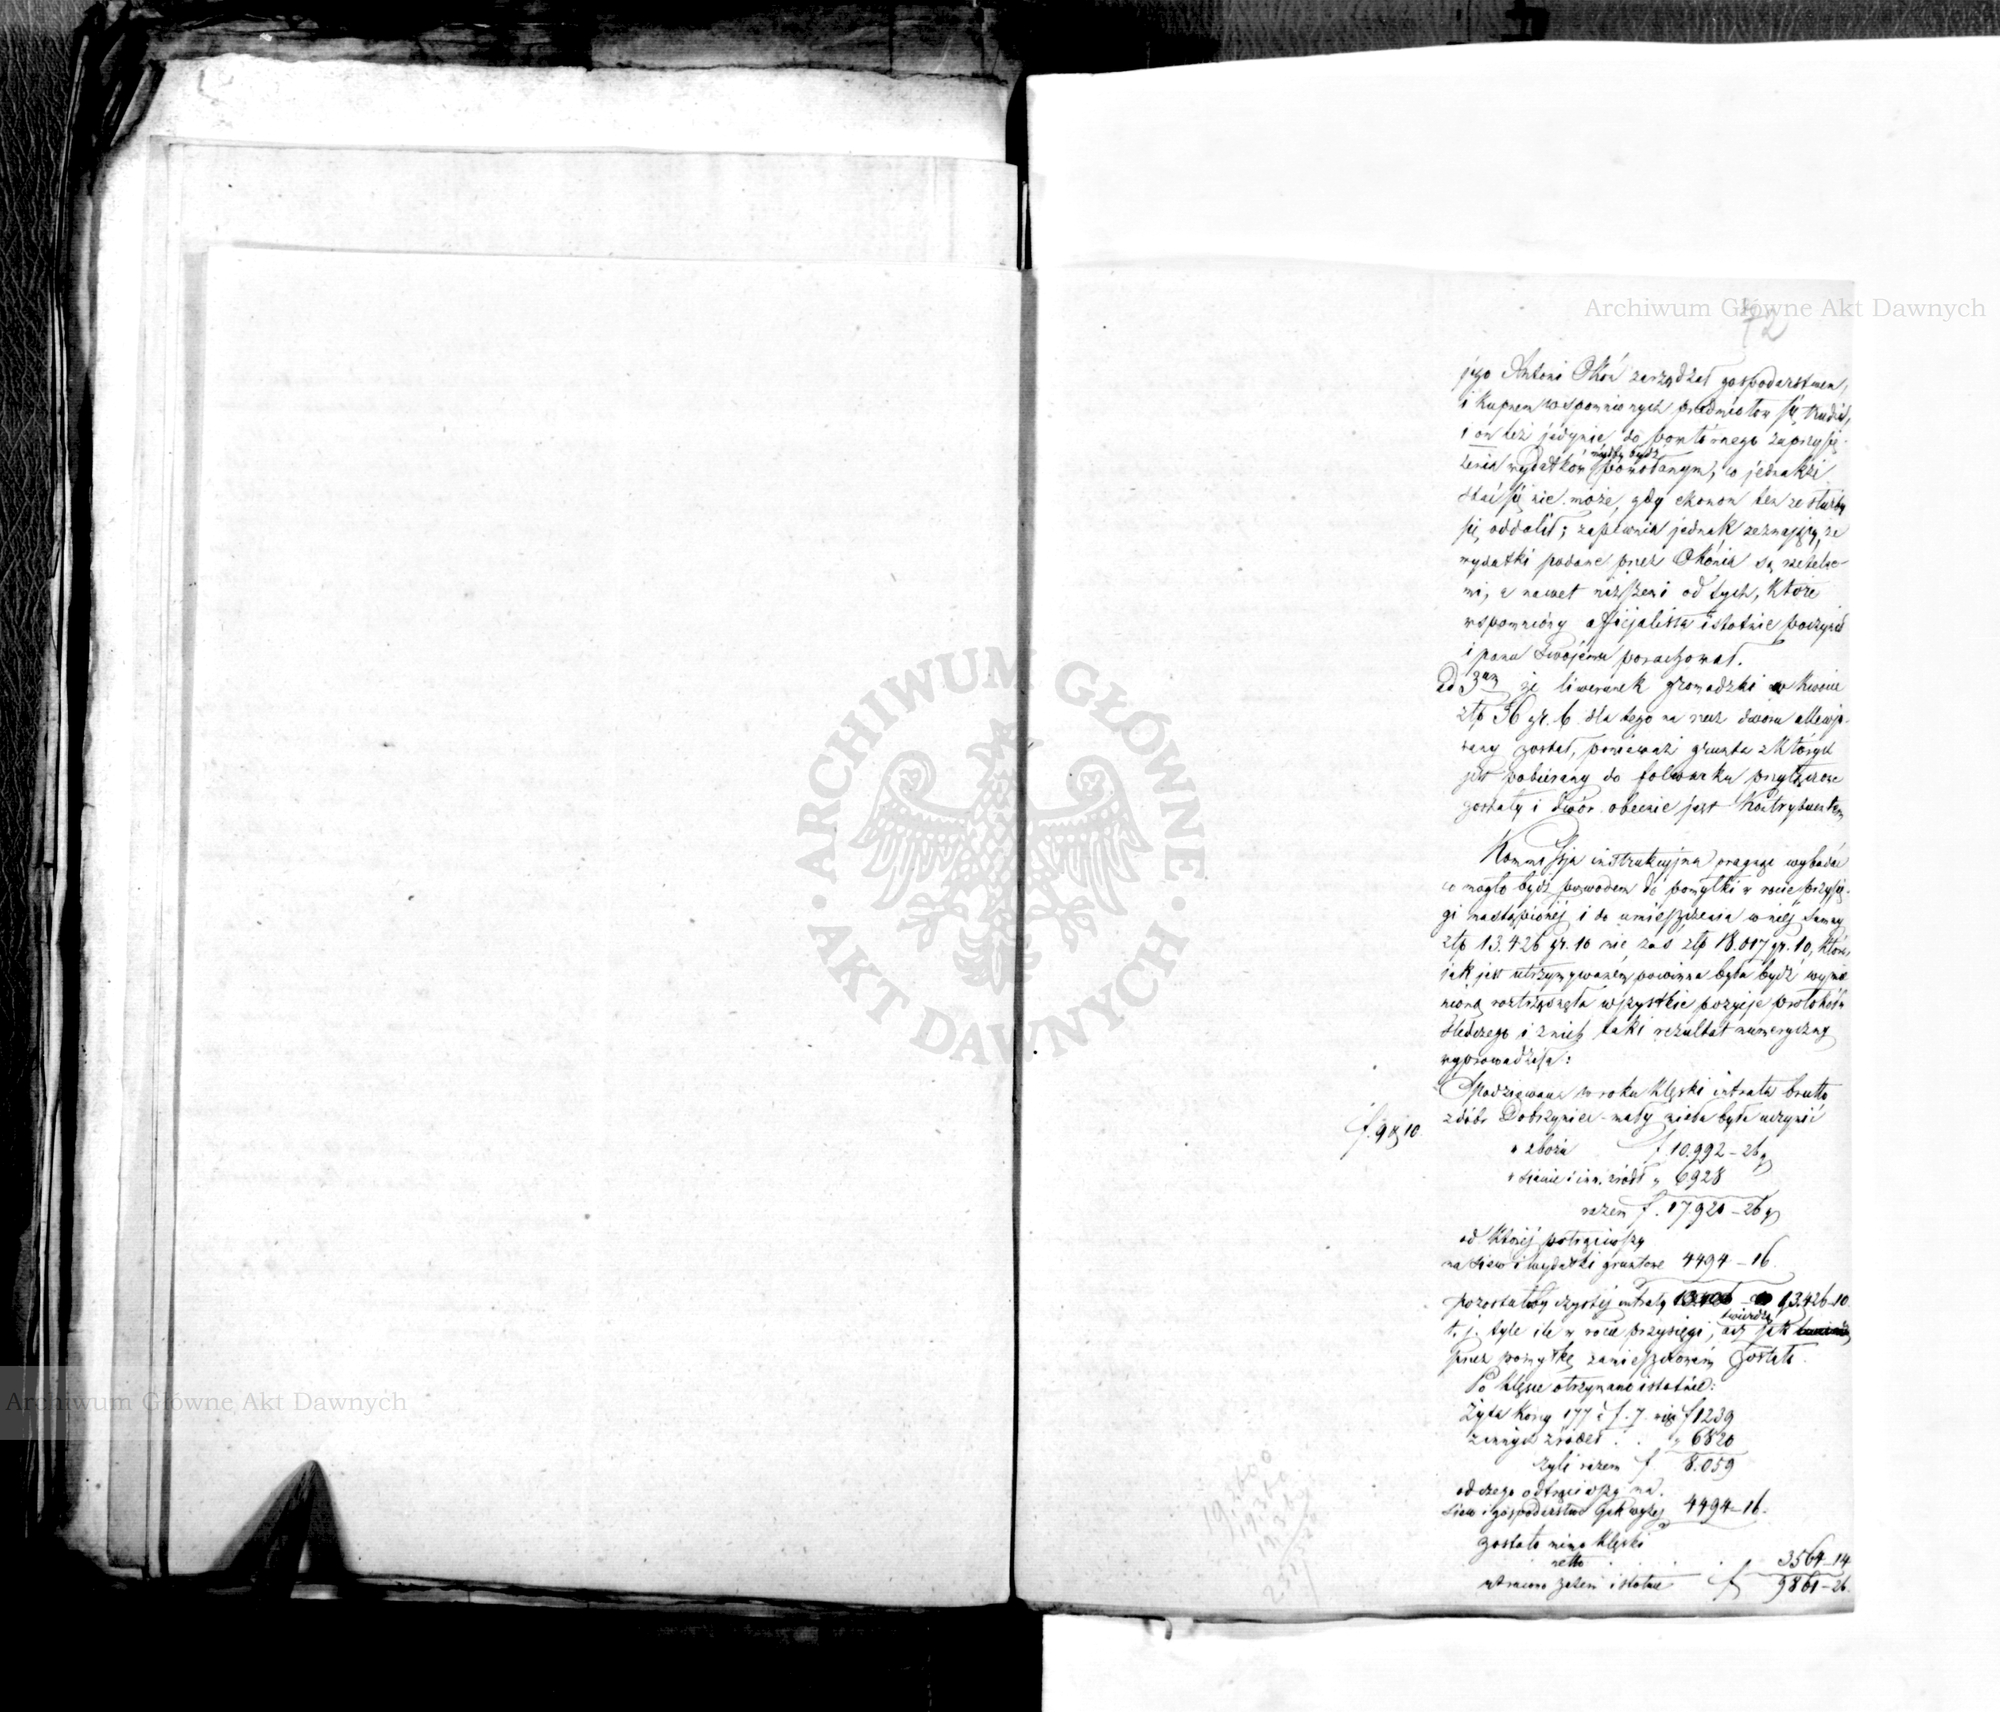 Archiwum Główne Akt Dawnych
72
jego Antoni Okón zarządzał gospodarstwem,
i kupnem wspomnionych przedmiotów się trudnił,
i on też jedynie do powtórnego zaprzysię-
żenia wydatków mógłby bydź powołanym, co jednakże
stać się nie może, gdy ekonom ten ze służby
się oddalił; zapewnia jednak zeznający, że
wydatki podane przez Okónia są rzetelne-
mi, a nawet niższemi od tych, które
wspomniony officjalista istotnie poczynił
i panu swojemu porachował.
ad 3um że liwerunek gromadzki w kwocie
złp 36 gr. 6 dla tego na rzecz dworu allewjo-
wany został, ponieważ grunta z których
jest pobierany do folwarku przyłączone
zostały i dwór obecnie jest kontrybuentem
Kommissja instrukcyjna pragnąc wybadać
co mogło bydź powodem do pomyłki w rocie przysię-
gi nastąpionej i do umieszczenia w niej summy
złp 13.426 gr. 10 nie zaś złp 18.017 gr. 10, która,
jak jest utrzymywaném, powinna była bydź wymie-
nioną roztrząsnęła wszystkie pozycje protokółu
śledczego i z nich taki rezultat numeryczny
wyprowadziła:
Spodziewana w roku klęski intrata brutto
z dóbr Dobrzyniec-mały miała była uczynić
f. 9 & 10
w zbożu f 10.992 – 26 g
w sianie i inn. źródł " 6928
razem f. 17920 – 26 g
od której potrąciwszy
na siew i wydatki gruntowe 4494 – 16
pozostałby czystej intraty 13.426–10
t. j. tyle ile w rocie przysięgi, acz jak twierdzą
przez pomyłkę zamieszczoném zostało.
Po klęsce otrzymano istotnie:
Żyta korcy 177 à f. 7. więc f 1239
z innych źródeł . . " 6820
czyli razem f. 8.059
od czego odtrąciwszy na
siew i gospodarstwo jak wyżej 4494–16
zostało mimo klęski
netto 3564–14
utracono zatem istotnie f 9861–26
ARCHIWUM GŁÓWNE
AKT DAWNYCH
Archiwum Główne Akt Dawnych